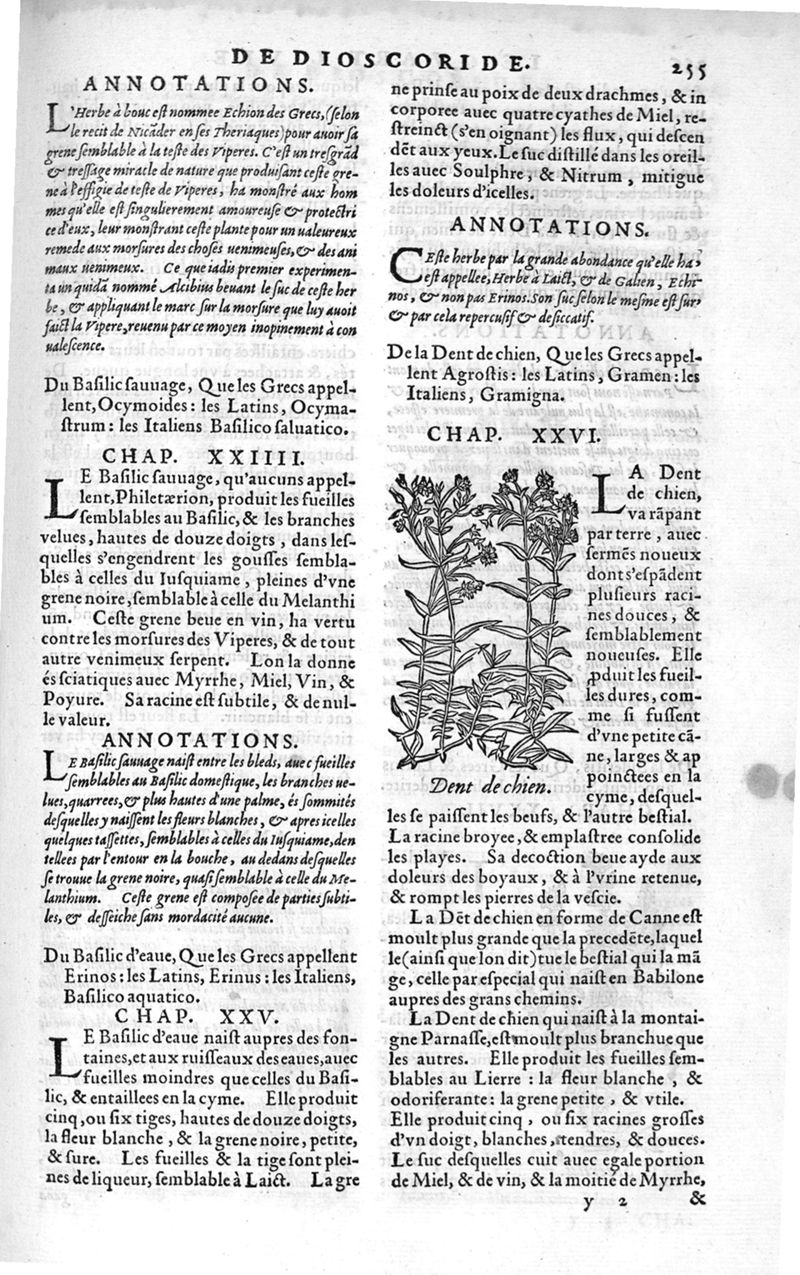 DE DIOSCORIDE.
255
ANNOTATIONS.
L'Herbe à bouc est nommee Echion des Grecs, (selon
le recit de Nicãder en ses Theriaques) pour auoir sa
grene semblable à la teste des Viperes. C'est un tresgrãd
& tressage miracle de nature que produisant ceste gre-
ne à l'effigie de teste de Viperes, ha monstré aux hom
mes qu'elle est singulierement amoureuse & protectri
ce d'eux, leur monstrant ceste plante pour un valeureux
remede aux morsures des choses uenimeuses, & des ani
maux uenimeux. Ce que iadis premier experimen-
ta un quidã nommé Alcibius beuant le suc de ceste her
be, & appliquant le marc sur la morsure que luy auoit
faict la Vipere, reuenu par ce moyen inopinement à con
ualescence.
Du Basilic sauuage, Que les Grecs appel-
lent, Ocymoides: les Latins, Ocyma-
strum: les Italiens Basilico saluatico.
CHAP. XXIIII.
LE Basilic sauuage, qu'aucuns appel-
lent, Philetærion, produit les fueilles
semblables au Basilic, & les branches
velues, hautes de douze doigts, dans les-
quelles s'engendrent les gousses sembla-
bles à celles du Iusquiame, pleines d'vne
grene noire, semblable à celle du Melanthi
um. Ceste grene beue en vin, ha vertu
contre les morsures des Viperes, & de tout
autre venimeux serpent. Lon la donne
és sciatiques auec Myrrhe, Miel, Vin, &
Poyure. Sa racine est subtile, & de nul-
le valeur.
ANNOTATIONS.
LE Basilic sauuage naist entre les bleds, auec fueilles
semblables au Basilic domestique, les branches ue-
lues, quarrees, & plus hautes d'une palme, és sommités
desquelles y naissent les fleurs blanches, & apres icelles
quelques tassettes, semblables à celles du Iusquiame, den
tellees par l'entour en la bouche, au dedans desquelles
se trouue la grene noire, quasi semblable à celle du Me-
lanthium. Ceste grene est composee de parties subti-
les, & desseiche sans mordacité aucune.
Du Basilic d'eaue, Que les Grecs appellent
Erinos: les Latins, Erinus: les Italiens,
Basilico aquatico.
CHAP. XXV.
LE Basilic d'eaue naist aupres des fon-
taines, et aux ruisseaux des eaues, auec
fueilles moindres que celles du Basi-
lic, & entaillees en la cyme. Elle produit
cinq, ou six tiges, hautes de douze doigts,
la fleur blanche, & la grene noire, petite,
& sure. Les fueilles & la tige sont plei-
nes de liqueur, semblable à Laict. La gre
ne prinse au poix de deux drachmes, & in
corporee auec quatre cyathes de Miel, re-
streinct (s'en oignant) les flux, qui descen
dẽt aux yeux. Le suc distillé dans les oreil-
les auec Soulphre, & Nitrum, mitigue
les doleurs d'icelles.
ANNOTATIONS.
CEste herbe par la grande abondance qu'elle ha
est appellee, Herbe à Laict, & de Galien, Echi-
nos, & non pas Erinos. Son suc selon le mesme est sur,
& par cela repercusif & desiccatif.
De la Dent de chien, Que les Grecs appel-
lent Agrostis: les Latins, Gramen: les
Italiens, Gramigna.
CHAP. XXVI.
LA Dent
de chien,
va rãpant
par terre, auec
sermẽs noueux
dont s'espãdent
plusieurs raci-
nes douces, &
semblablement
noueuses. Elle
ꝓduit les fueil-
les dures, com-
me si fussent
d'vne petite cã-
ne, larges & ap
poinctees en la
cyme, desquel-
Dent de chien.
les se paissent les beufs, & l'autre bestial.
La racine broyee, & emplastree consolide
les playes. Sa decoction beue ayde aux
doleurs des boyaux, & à l'vrine retenue,
& rompt les pierres de la vescie.
La Dẽt de chien en forme de Canne est
moult plus grande que la precedẽte, laquel
le (ainsi que lon dit) tue le bestial qui la mã
ge, celle par especial qui naist en Babilone
aupres des grans chemins.
La Dent de chien qui naist à la montai-
gne Parnasse, est moult plus branchue que
les autres. Elle produit les fueilles sem-
blables au Lierre: la fleur blanche, &
odoriferante: la grene petite, & vtile.
Elle produit cinq, ou six racines grosses
d'vn doigt, blanches, tendres, & douces.
Le suc desquelles cuit auec egale portion
de Miel, & de vin, & la moitié de Myrrhe,
y 2 &